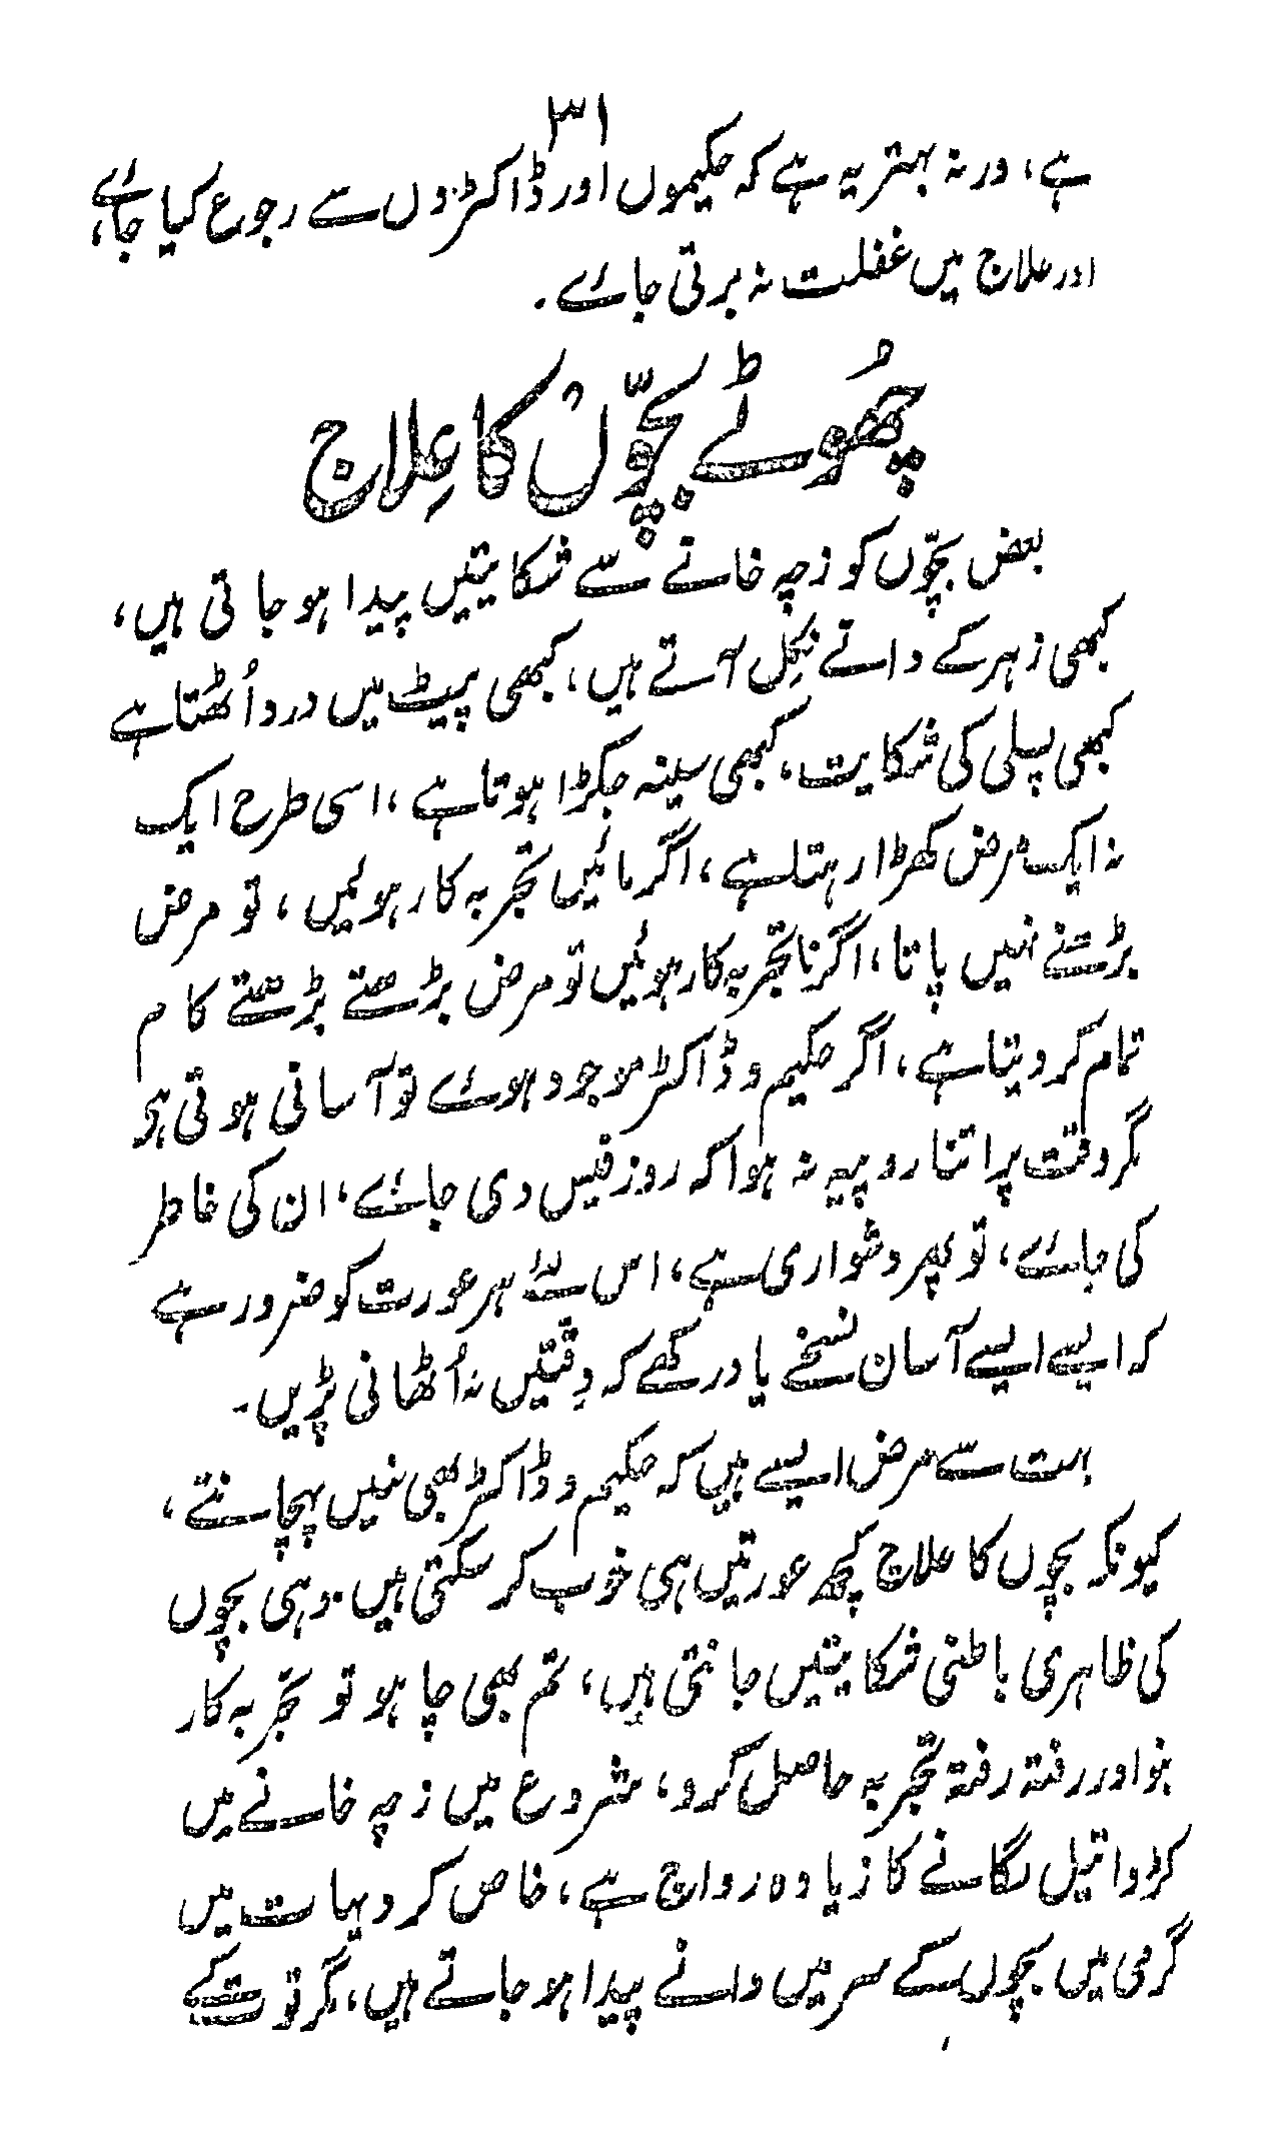 ۳۱
ہے، ورنہ بہتر یہ ہے کہ حکیموں اور ڈاکٹروں سے رجوع کیا جائے،
اور علاج میں غفلت نہ برتی جائے۔
چھُوٹے بچّوں کا عِلاج
بعض بچّوں کو زچہ خانے سے شکایتیں پیدا ہو جاتی ہیں،
کبھی زہر کے دانے نکِل آتے ہیں، کبھی پیٹ میں درد اُٹھتا ہے
کبھی پسلی کی شکایت، کبھی سینہ جکڑا ہوتا ہے، اسی طرح ایک
نہ ایک مرض کھڑا رہتا ہے، اگر مائیں تجربہ کار ہوئیں، تو مرض
بڑھنے نہیں پاتا، اگر ناتجربہ کار ہوئیں تو مرض بڑھتے بڑھتے کام
تمام کر دیتا ہے، اگر حکیم و ڈاکٹر موجود ہوئے تو آسانی ہوتی ہو
مگر وقت پر اتنا روپیہ نہ ہوا کہ روز فیس دی جائے، ان کی خاطر
کی جائے، تو پھر دشواری ہے، اس لئے ہر عورت کو ضرور ہے
کہ ایسے ایسے آسان نسخے یاد رکھے کہ دِقّتیں نہ اُٹھانی پڑیں۔
بہت سے مرض ایسے ہیں کہ حکیم و ڈاکٹر بھی نہیں پہچانتے،
کیونکہ بچوں کا علاج کچھ عورتیں ہی خوب کر سکتی ہیں۔ وہی بچوں
کی ظاہری باطنی شکایتیں جانتی ہیں، تم بھی چاہو تو تجربہ کار
بنو اور رفتہ رفتہ تجربہ حاصل کرو، شروع میں زچہ خانے میں
کڑوا تیل لگانے کا زیادہ رواج ہے، خاص کر دیہات میں
گرمی میں بچوں کے سر میں دانے پیدا ہو جاتے ہیں، مگر توت کے